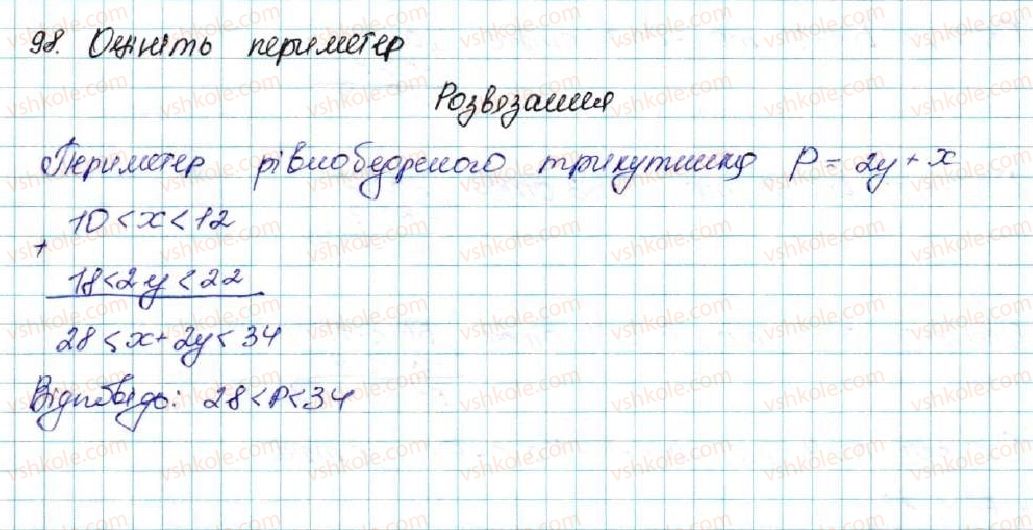 98. Оцініть периметр
Розвязання
Периметр рівнобедреного трикутника P = 2y + x
10 < x < 12
+
18 < 2y < 22
28 < x + 2y < 34
Відповідь: 28 < P < 34